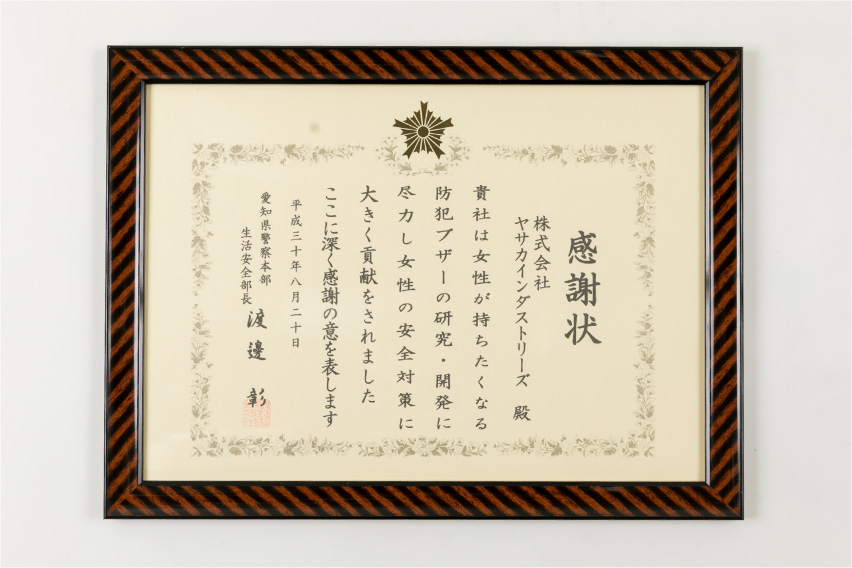 感謝状
株式会社
ヤサカインダストリーズ 殿
貴社は女性が持ちたくなる
防犯ブザーの研究・開発に
尽力し女性の安全対策に
大きく貢献をされました
ここに深く感謝の意を表します
平成三十年八月二十日
愛知県警察本部
生活安全部長 渡邊 彰